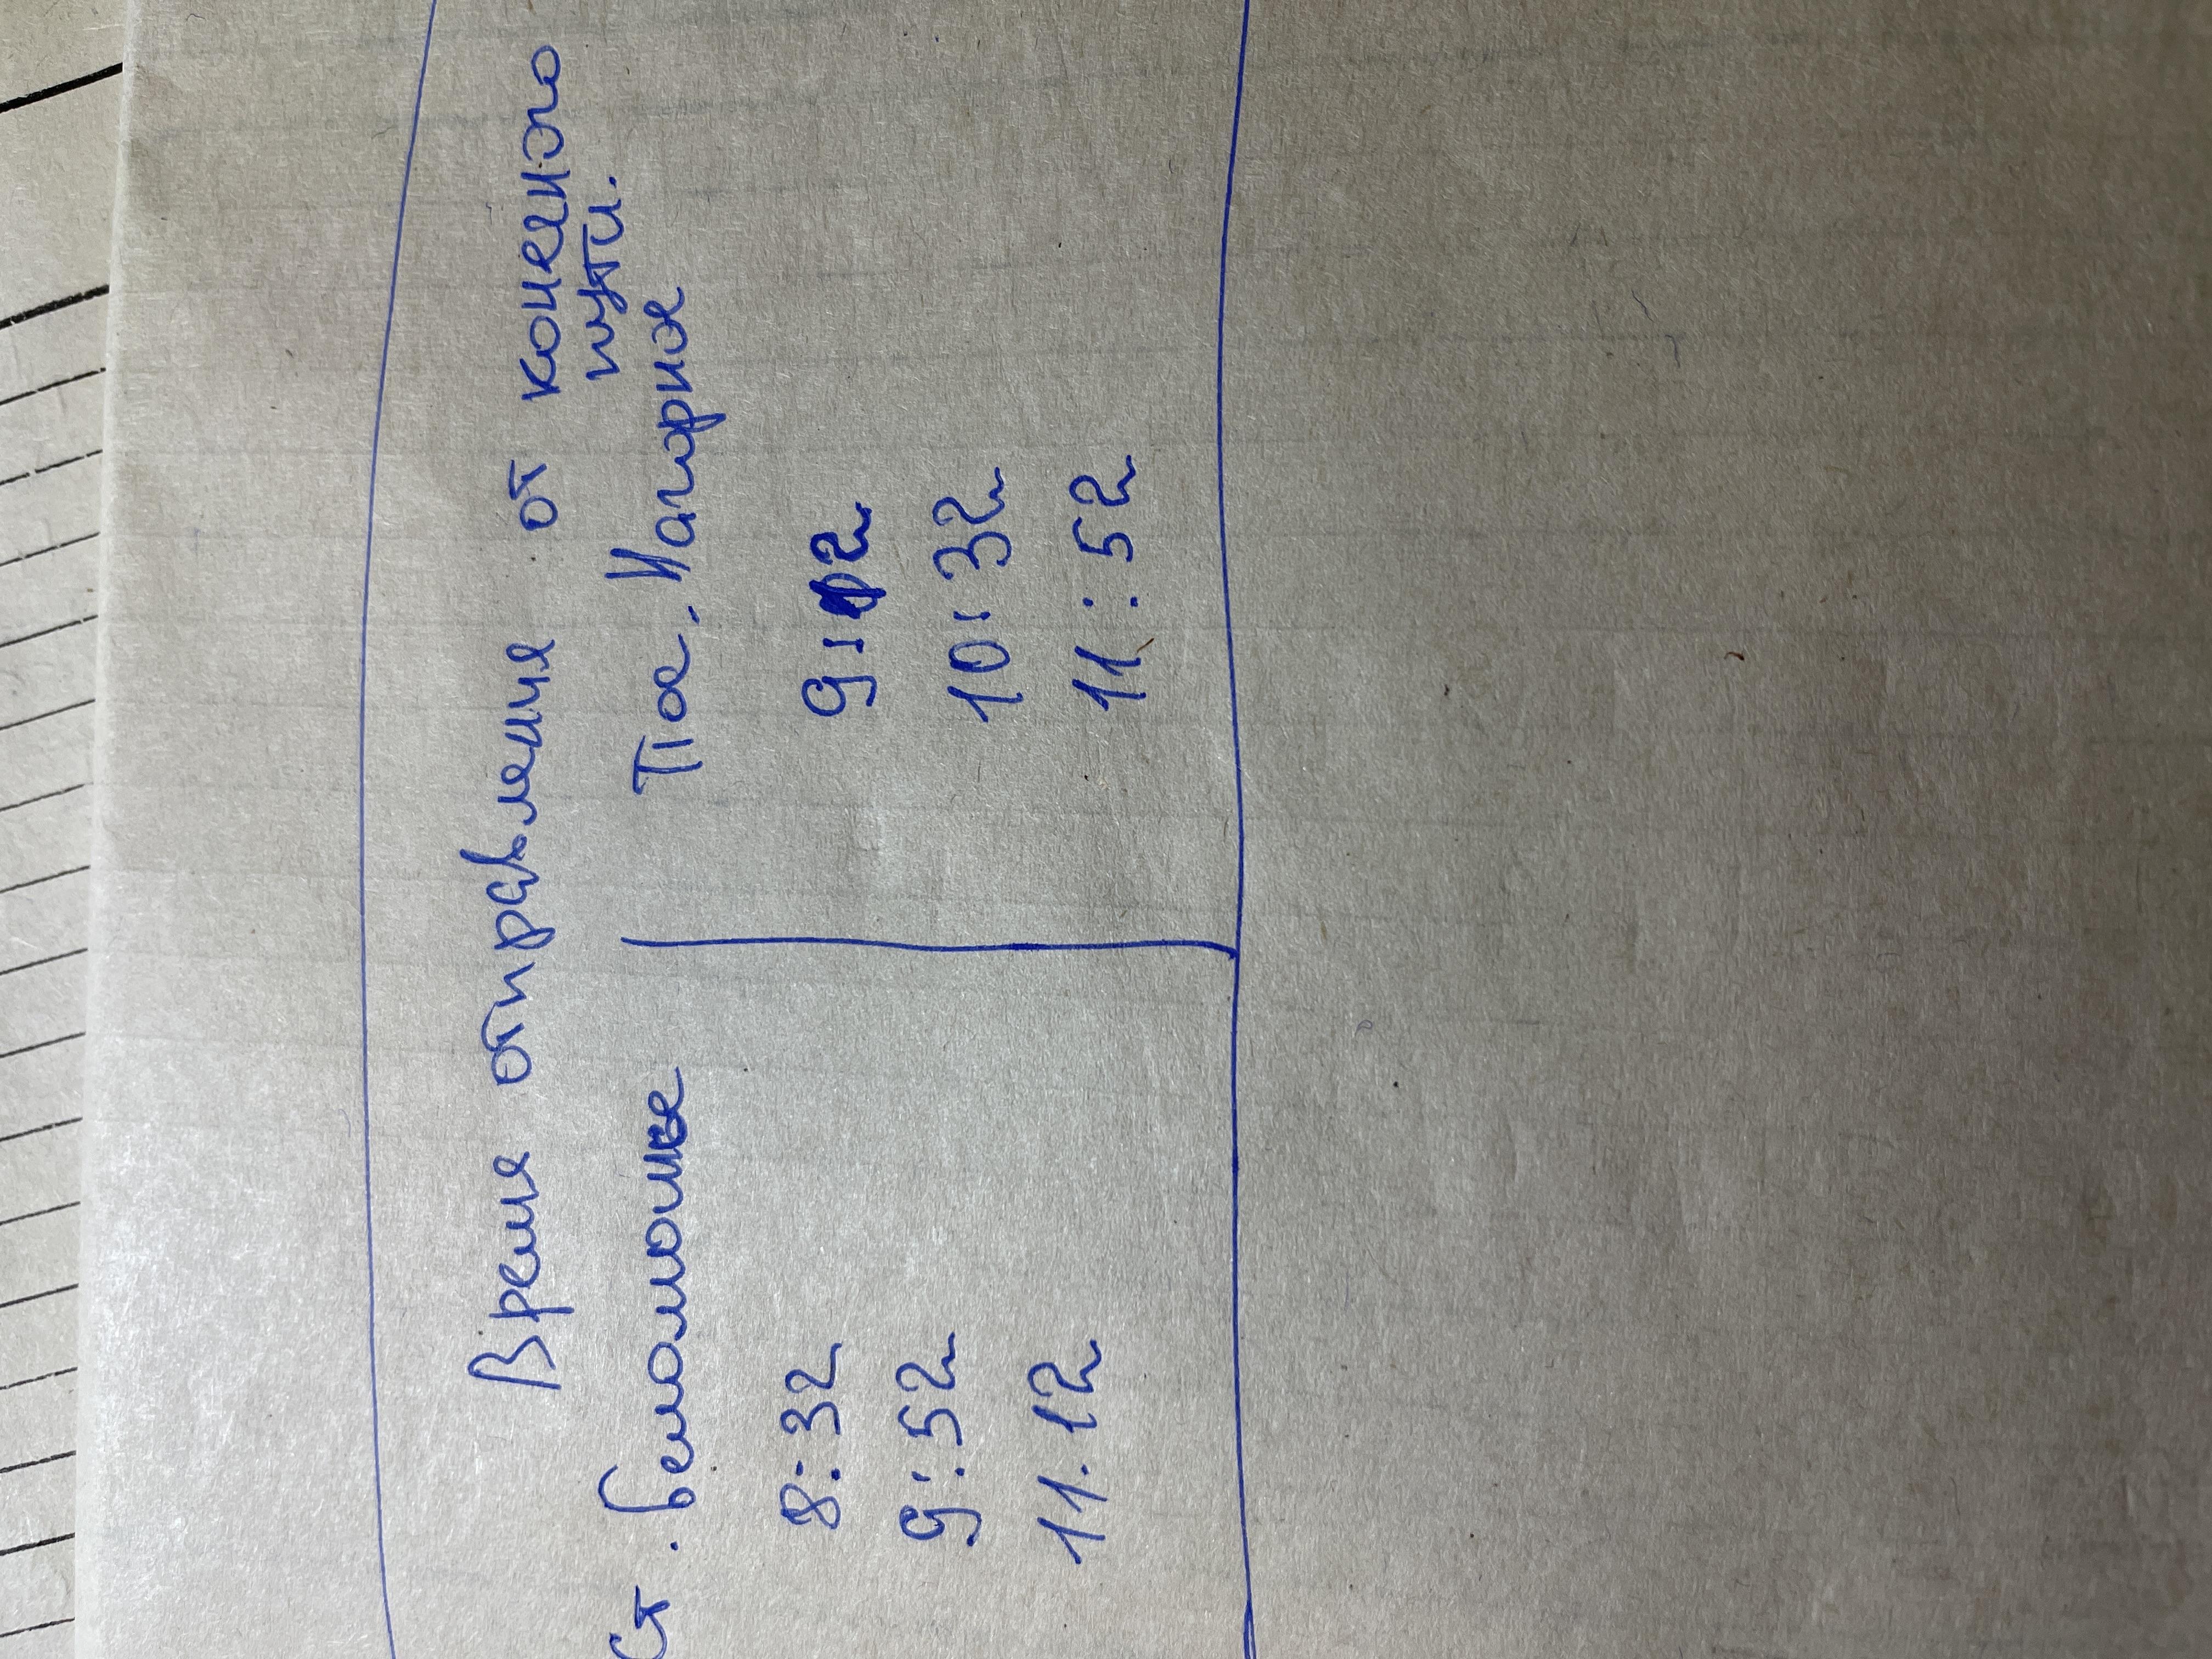 Время отправления от конечного
пути.
Ст. Беломорье Пос. Нагорное
8:32 9:12
9:52 10:32
11:12 11:52